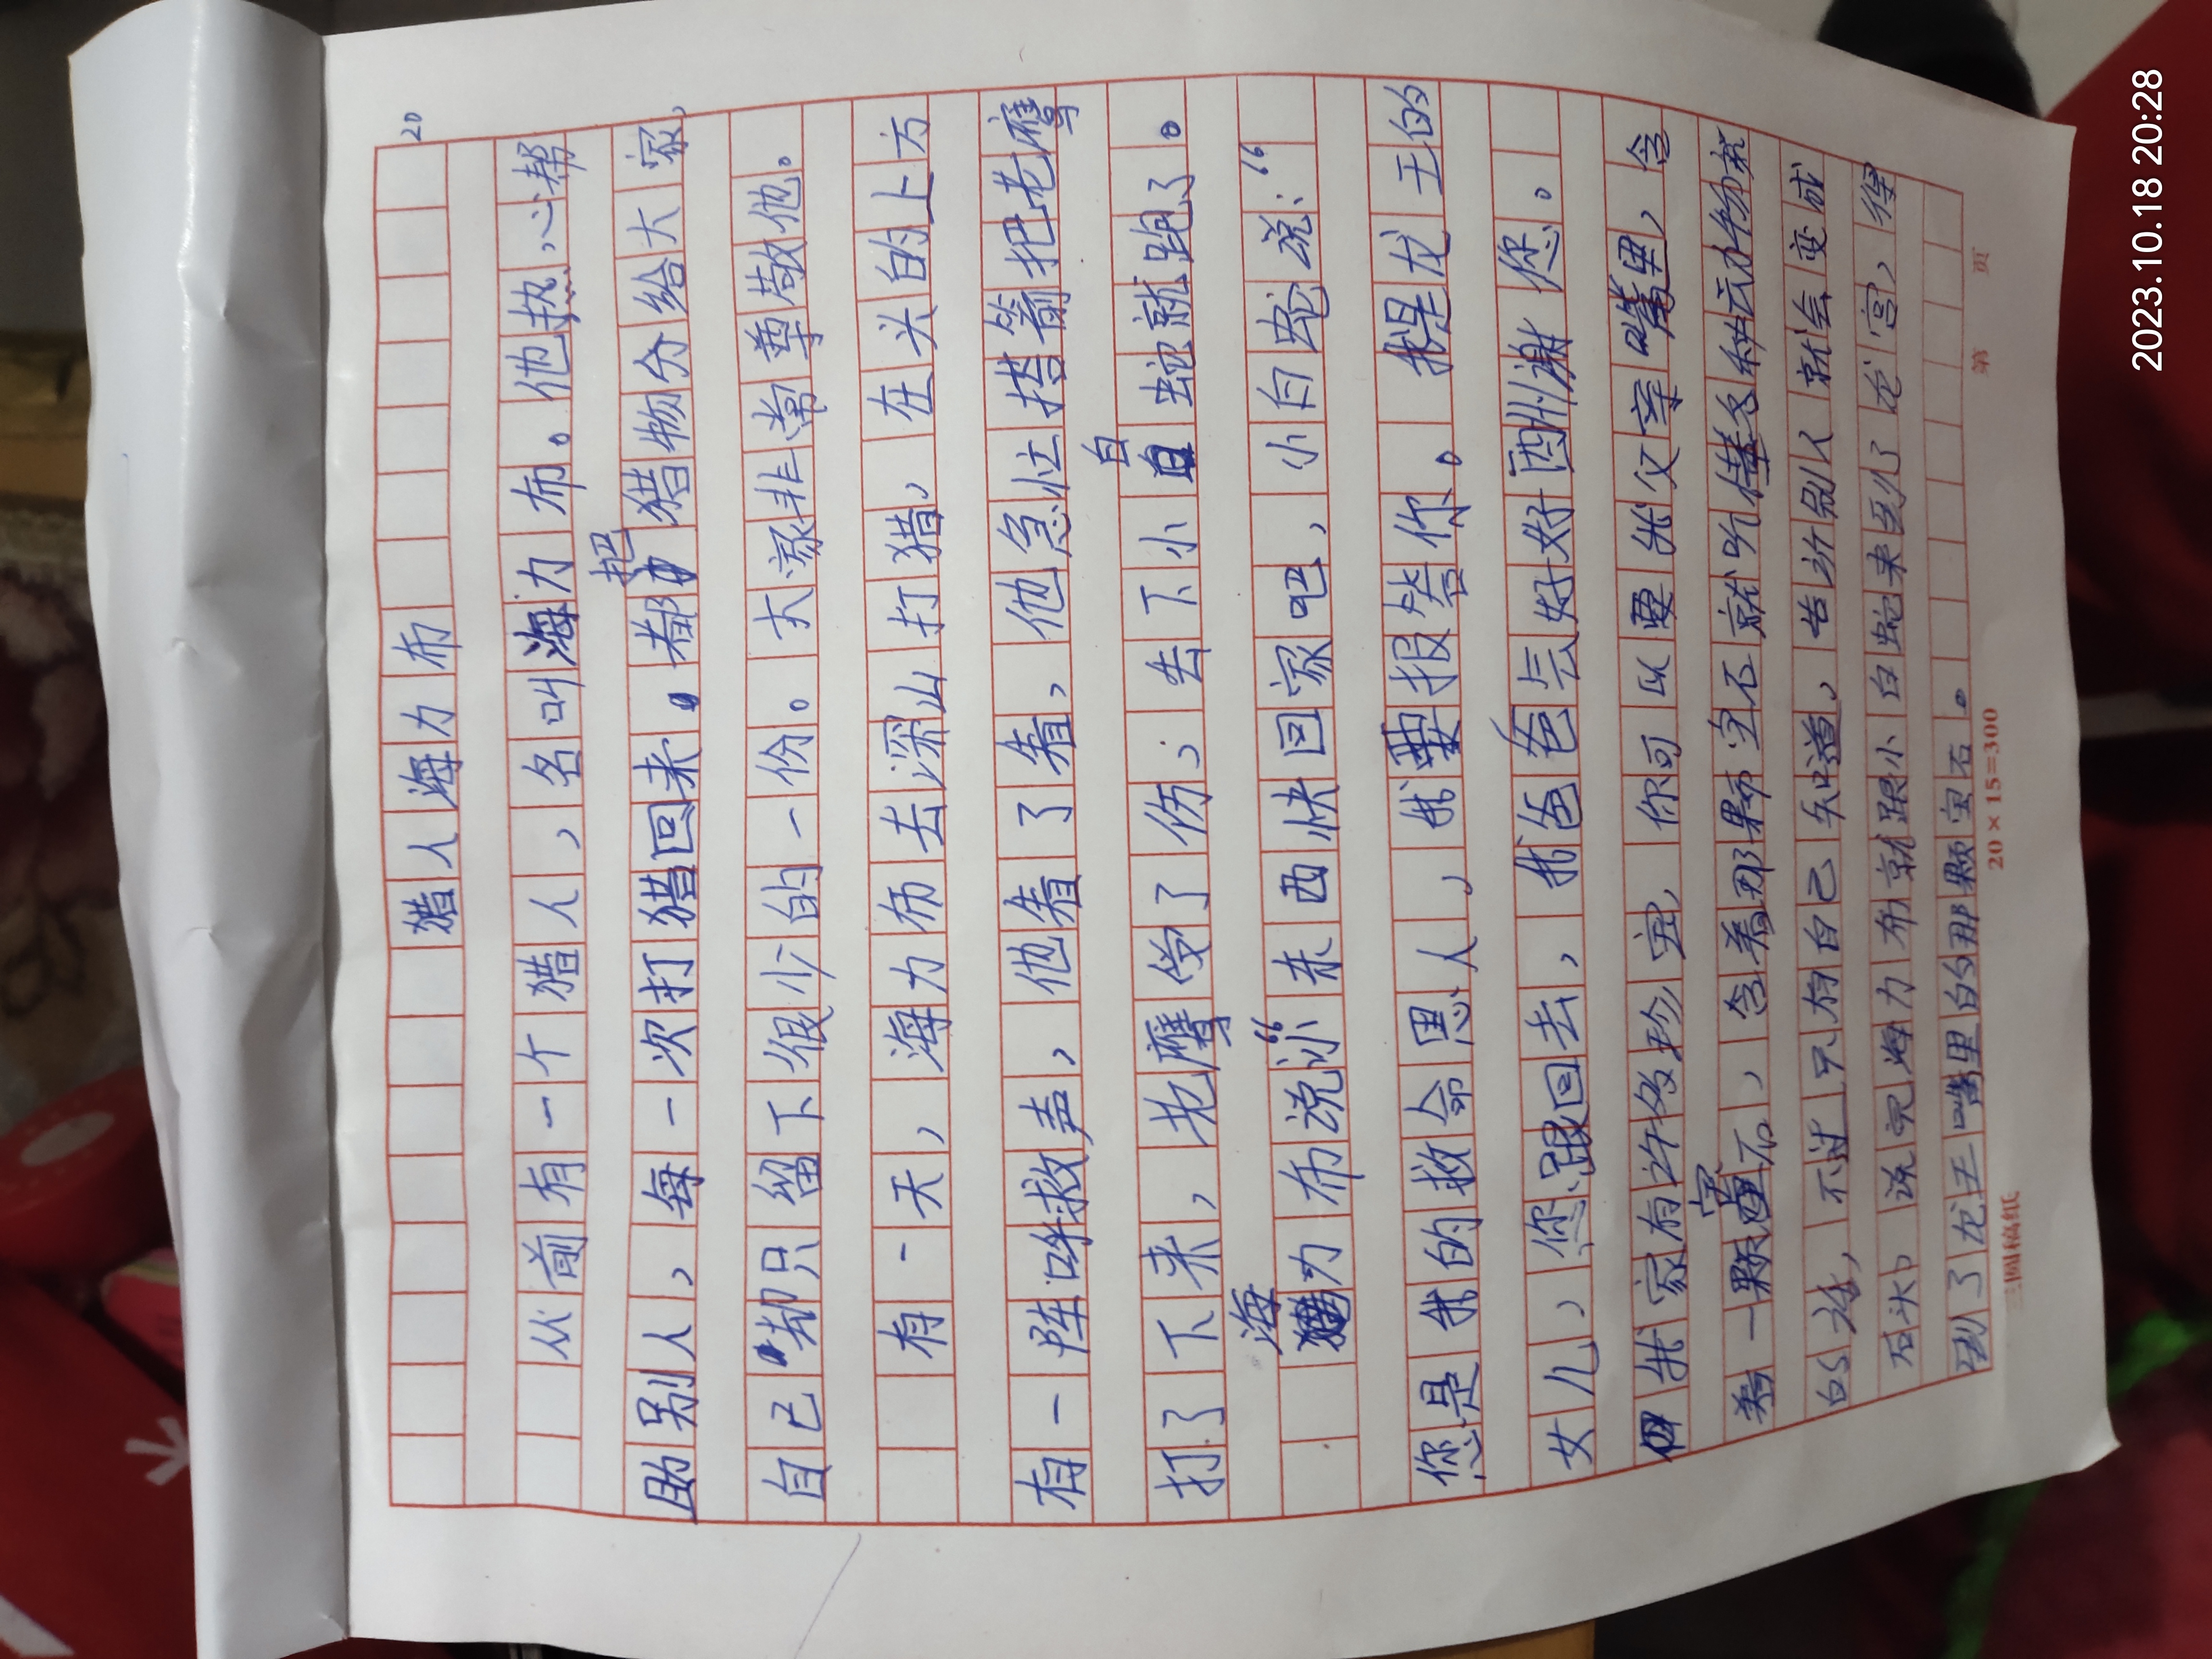 20
猎人海力布
从前有一个猎人，名叫海力布。他热心帮
助别人，每一次打猎回来，都把猎物分给大家，
自己却只留下很少的一份。大家非常尊敬他。
有一天，海力布去深山打猎，在头的上方
有一阵呼救声，他看了看，他急忙搭箭把老鹰
打了下来，老鹰受了伤，丢下小白蛇就跑了。
海力布说“小东西快回家吧，小白蛇说：“
您是我的救命恩人，我要报答你。我是龙王的
女儿，您跟回去，我爸爸点好好酬谢您。
我家有许多珍宝，你可以要我父亲嘴里，含
着一颗宝石，含着那颗宝石就听懂各种动物说
的话，不过只有自己知道，告诉别人就会变成
石头，说完海力布就跟小白蛇来到了龙宫，得
到了龙王嘴里的那颗宝石。
20×15=300
第 页
2023.10.18 20:28